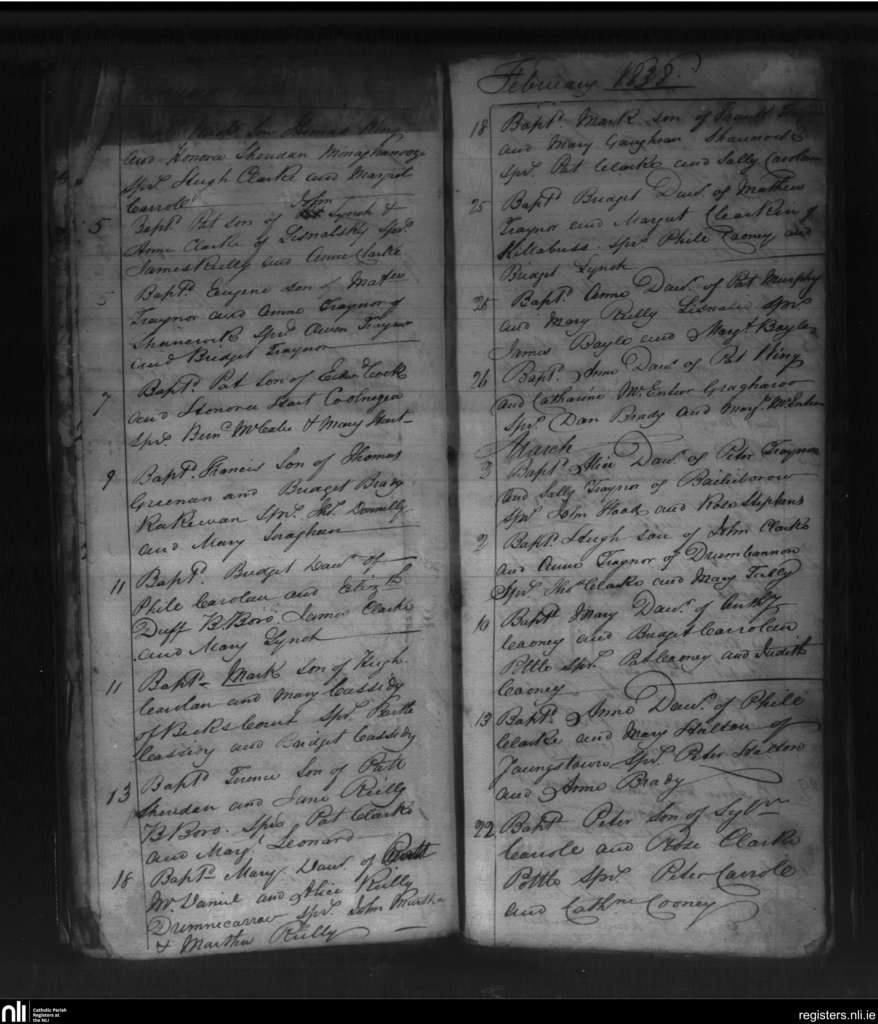 Son Thomas King
and Honora Sheridan Monaghanooze
Spr. Hugh Clarke and Margret
Carroll
5 Bapt. Pat son of John Lynch &
Anne Clarke of Lisnalsky Spr.
James Reilly and Anne Clarke
5 Bapt. Eugene son of Mathew
Traynor and Anne Traynor of
Shancork Spr. Owen Traynor
and Bridget Traynor
7 Bapt. Pat Son of Edwd Cook
and Honora Hart Coolnagga
Spr. Bernd McCabe & Mary Hart
9 Bapt. Francis Son of Thomas
Greenan and Bridget Brady
Rakeevan Spr. Thos. Donnelly
and Mary Soraghan
11 Bapt. Bridget Dawr. of
Phile Carolan and Elizth
Duff B.Boro. James Clarke
and Mary Lynch
11 Bapt. Mark son of Hugh
Carolan and Mary Cassidy
of Becks Court Spr. Bartle
Cassidy and Bridget Cassidy
13 Bapt. Terence Son of Patt
Sheridan and Jane Reilly
B.Boro. Spr. Pat Clarke
and Margt. Leonard
18 Bapt. Mary Dawr. of
Mc Daniel and Alice Reilly
Drumnecarrow Spr. John Martha
& Martha Reilly
February 1838.
18 Bapt. Mark son of Frank
and Mary Gaughran Shancork
Spr. Pat Clarke and Sally Carolan
25 Bapt. Bridget Dawr. of Mathew
Traynor and Margret Clearkin of
Killabuss. Spr. Phile Cooney and
Bridget Lynch
25 Bapt. Anne Dawr. of Pat Murphy
and Mary Reilly Lisnalee Spr.
James Boyle and Margt. Boyle
26 Bapt. Anne Dawr. of Pat King
and Catharine McEnteer Graghanoo
Spr. Dan Brady and Margt. McEnteer
March
3 Bapt. Alice Dawr. of Peter Traynor
and Sally Traynor of Bailieborow
Spr. John Hood and Rose Stephens
9 Bapt. Hugh son of John Clarke
and Anne Traynor of Drumbannon
Spr. Thos Clarke and Mary Tully
10 Bapt. Mary Dawr. of Anthy
Cooney and Bridget Carrolan
Pottle Spr. Pat Cooney and Judith
Cooney
13 Bapt. Anne Dawr. of Phile
Clarke and Mary Halton of
Youngstown Spr. Peter Halton
and Anne Brady
22 Bapt. Peter son of Sylvr.
Carrole and Rose Clarke
Pottle Spr. Peter Carrole
and Cathne Cooney
nli
Catholic Parish
Registers at
the NLI
registers.nli.ie